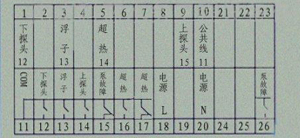 1 2 3 4 5 6 7 8 9 10 22 23
下探头 12
浮子 13
超热 14
上探头 15
公共线 11
COM
下探头
浮子
上探头
泵故障
超热
超热
电源 L
电源 N
泵故障
11 12 13 14 15 16 17 18 19 20 25 26